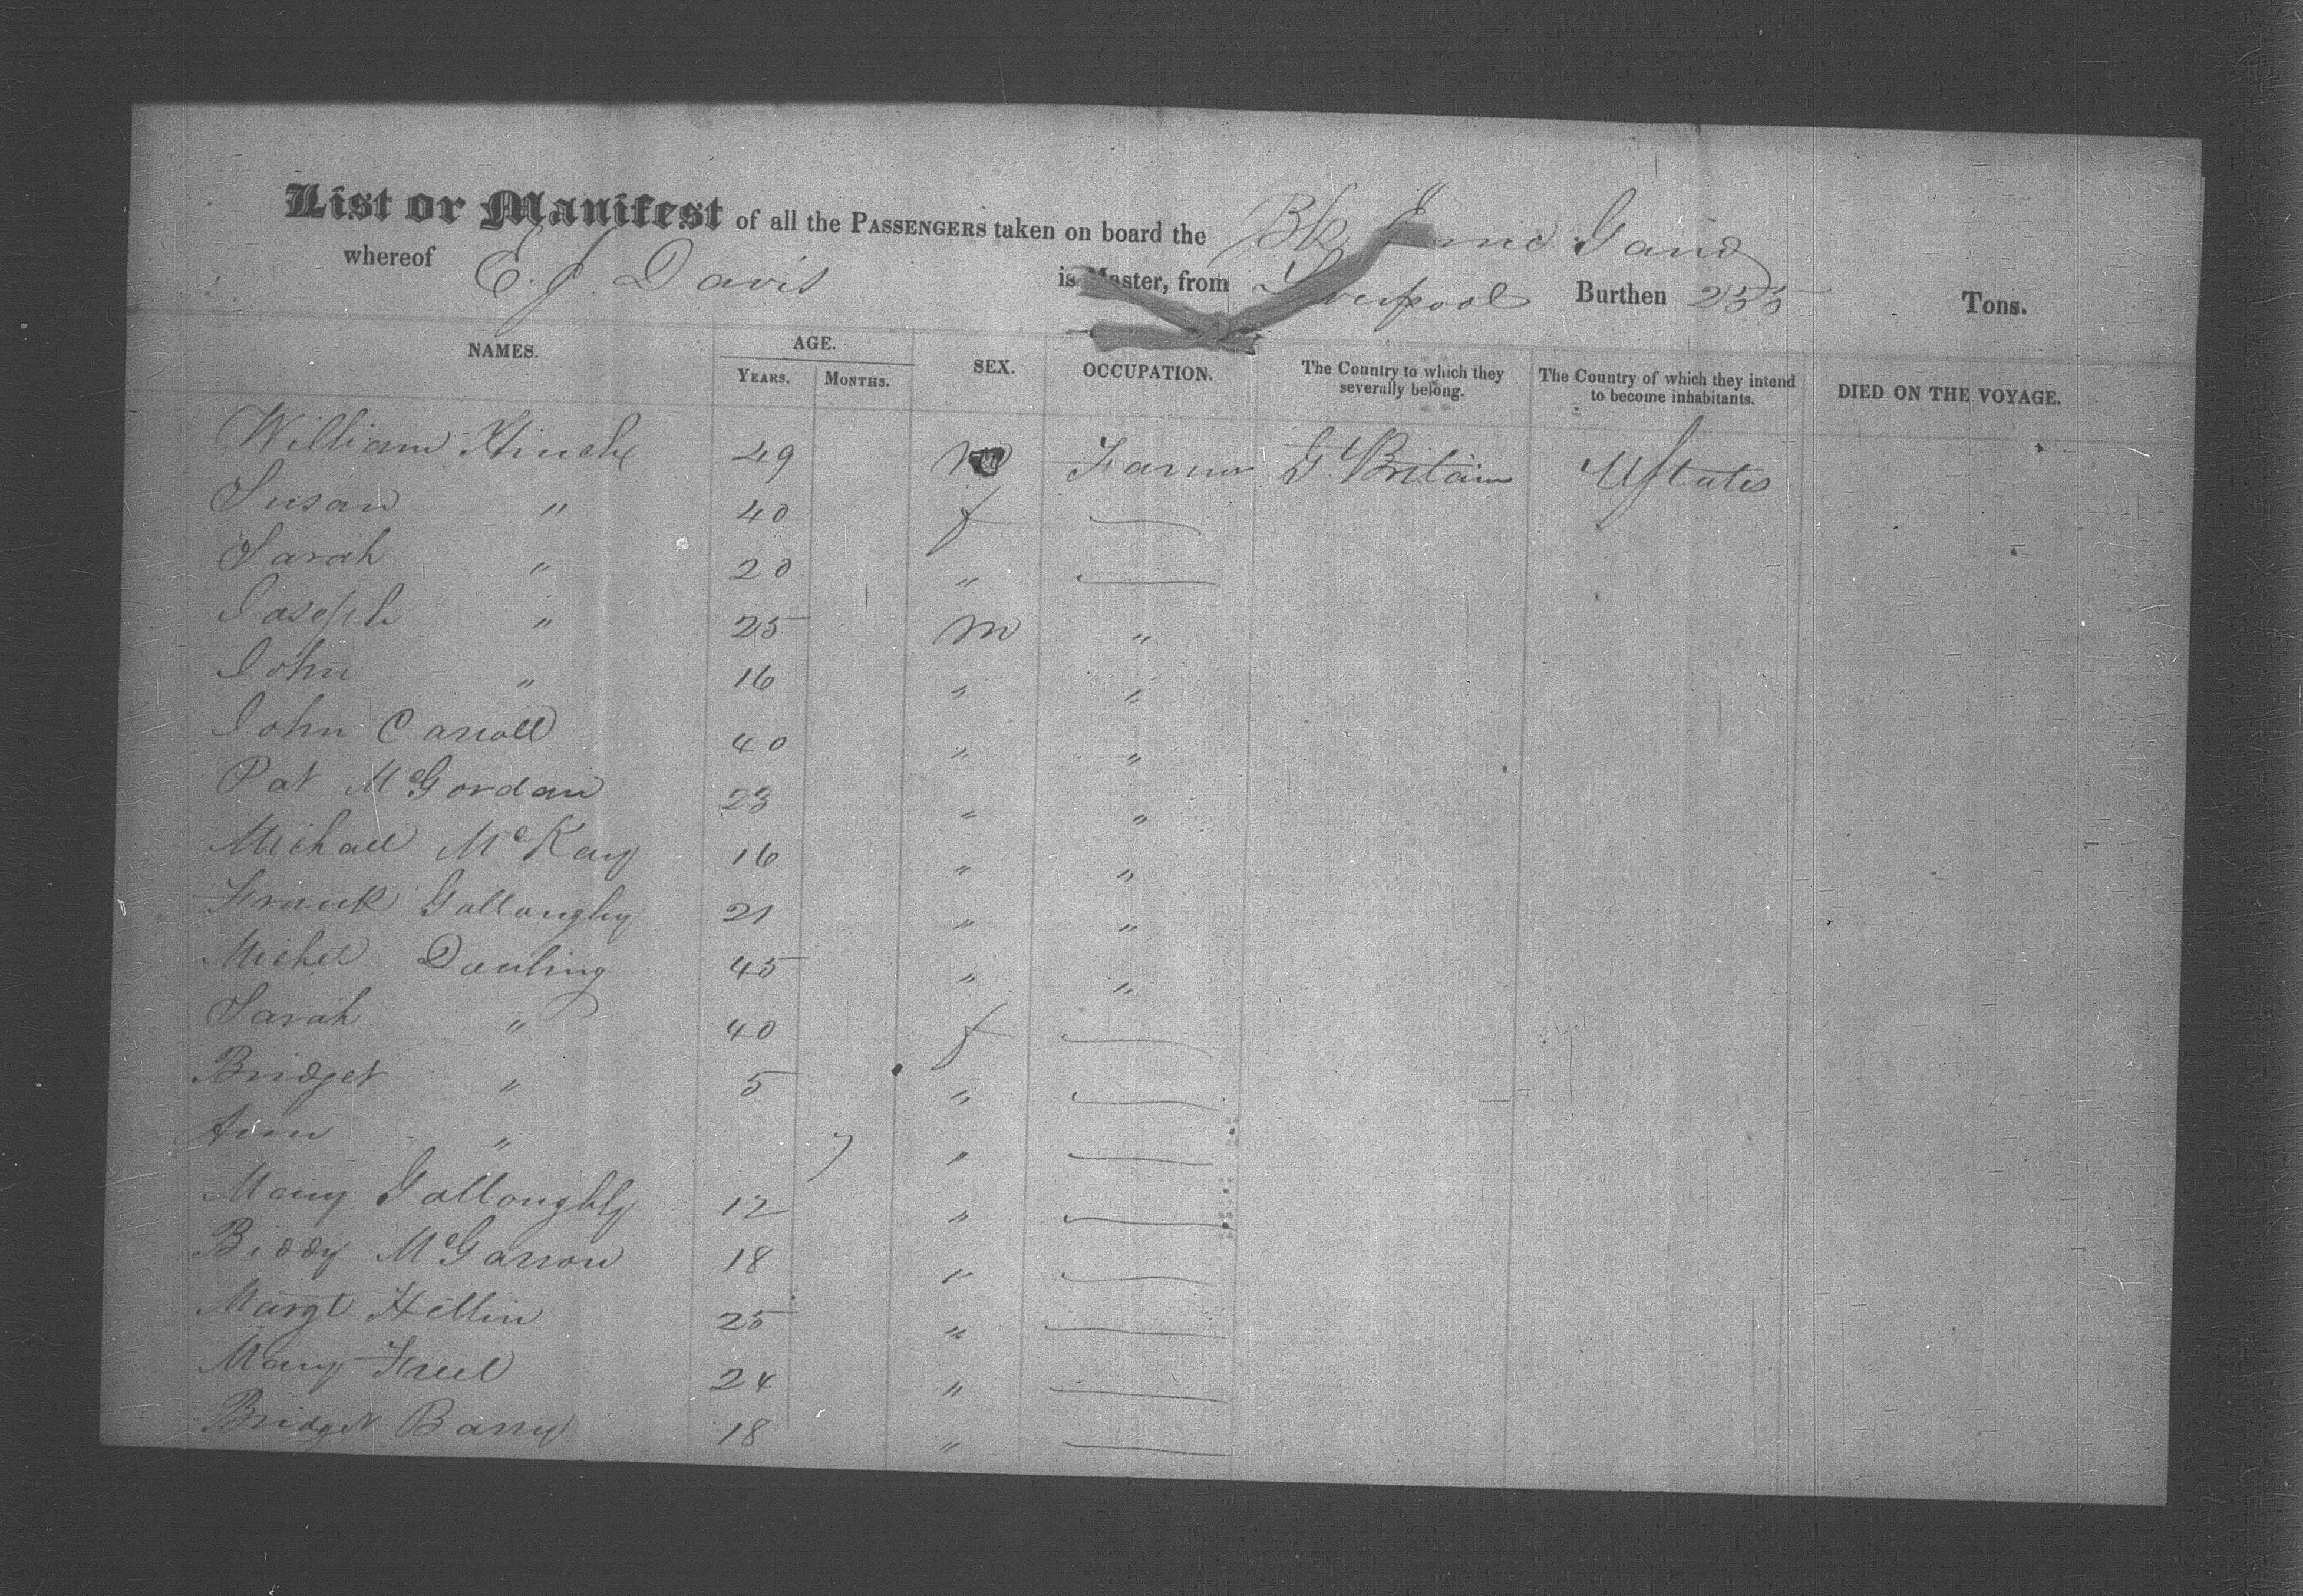 List or Manifest of all the PASSENGERS taken on board the Bk Gand
whereof E. J. Davis is Master, from Liverpool Burthen 255 Tons.
NAMES. AGE. SEX. OCCUPATION. The Country to which they severally belong. The Country of which they intend to become inhabitants. DIED ON THE VOYAGE.
YEARS. MONTHS.
William 49 m Farmer Gt Britain U States
Susan " 40 f —
Sarah " 20 " —
Joseph " 25 m "
John " 16 " "
John Carroll 40 " "
Pat McGordan 23 " "
Michael McKay 16 " "
Frank Galloughy 21 " "
Michel Dowling 45 " "
Sarah " 40 f —
Bridget " 5 " —
Ann " 7 " —
Mary Galloughly 12 " —
Biddy McGarron 18 " —
Margt 25 " —
Mary Freel 24 " —
Bridget Barry 18 " —